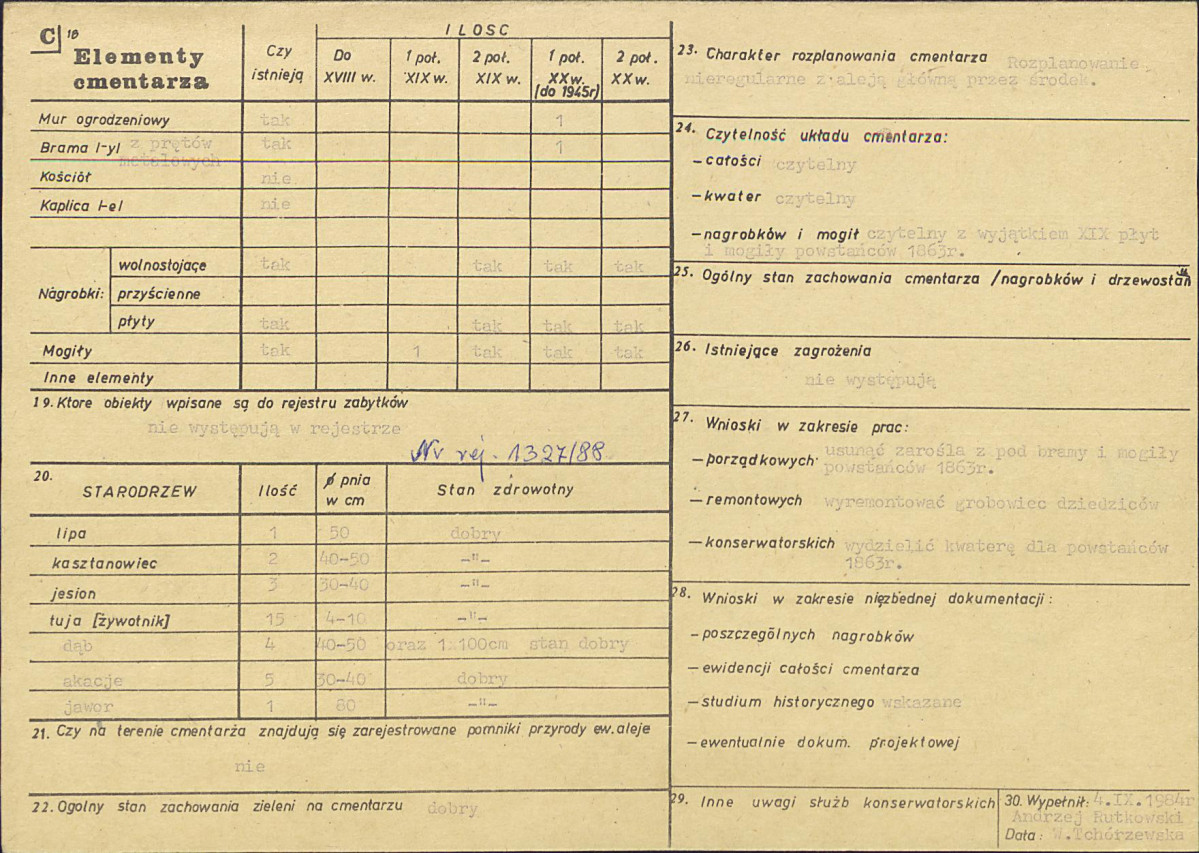 C 18
Elementy
cmentarza
Czy
istnieją
ILOSC
Do
XVIII w.
1 poł.
XIX w.
2 poł.
XIX w.
1 poł.
XX w.
(do 1945r)
2 poł.
XX w.
Mur ogrodzeniowy tak 1
Brama /-y/ z prętów metalowych tak 1
Kościół nie
Kaplica /-e/ nie
Nagrobki:
wolnostojące tak tak tak tak
przyścienne
płyty tak tak tak tak
Mogiły tak 1 tak tak tak
Inne elementy
19. Ktore obiekty wpisane są do rejestru zabytków
nie występują w rejestrze
Nr rej. 1327/88
20.
STARODRZEW Ilość ø pnia w cm Stan zdrowotny
lipa 1 50 dobry
kasztanowiec 2 40-50 -"-
jesion 3 30-40 -"-
tuja [żywotnik] 15 4-10 -"-
dąb 4 40-50 oraz 1 100cm stan dobry
akacje 5 30-40 dobry
jawor 1 80 -"-
21. Czy na terenie cmentarza znajdują się zarejestrowane pomniki przyrody ew. aleje
nie
22. Ogolny stan zachowania zieleni na cmentarzu dobry
23. Charakter rozplanowania cmentarza Rozplanowanie
nieregularne z aleją główną przez środek.
24. Czytelność układu cmentarza:
- całości czytelny
- kwater czytelny
- nagrobków i mogił czytelny z wyjątkiem XIX płyt
i mogiły powstańców 1863r.
25. Ogólny stan zachowania cmentarza /nagrobków i drzewostan
26. Istniejące zagrożenia
nie występują
27. Wnioski w zakresie prac:
- porządkowych usunąć zarośla z pod bramy i mogiły
powstańców 1863r.
- remontowych wyremontować grobowiec dziedziców
- konserwatorskich wydzielić kwaterę dla powstańców
1863r.
28. Wnioski w zakresie niezbednej dokumentacji:
- poszczególnych nagrobków
- ewidencji całości cmentarza
- studium historycznego wskazane
- ewentualnie dokum. projektowej
29. Inne uwagi służb konserwatorskich
30. Wypełnił: 4.IX.1984r
Andrzej Rutkowski
Data: W.Tchórzewska